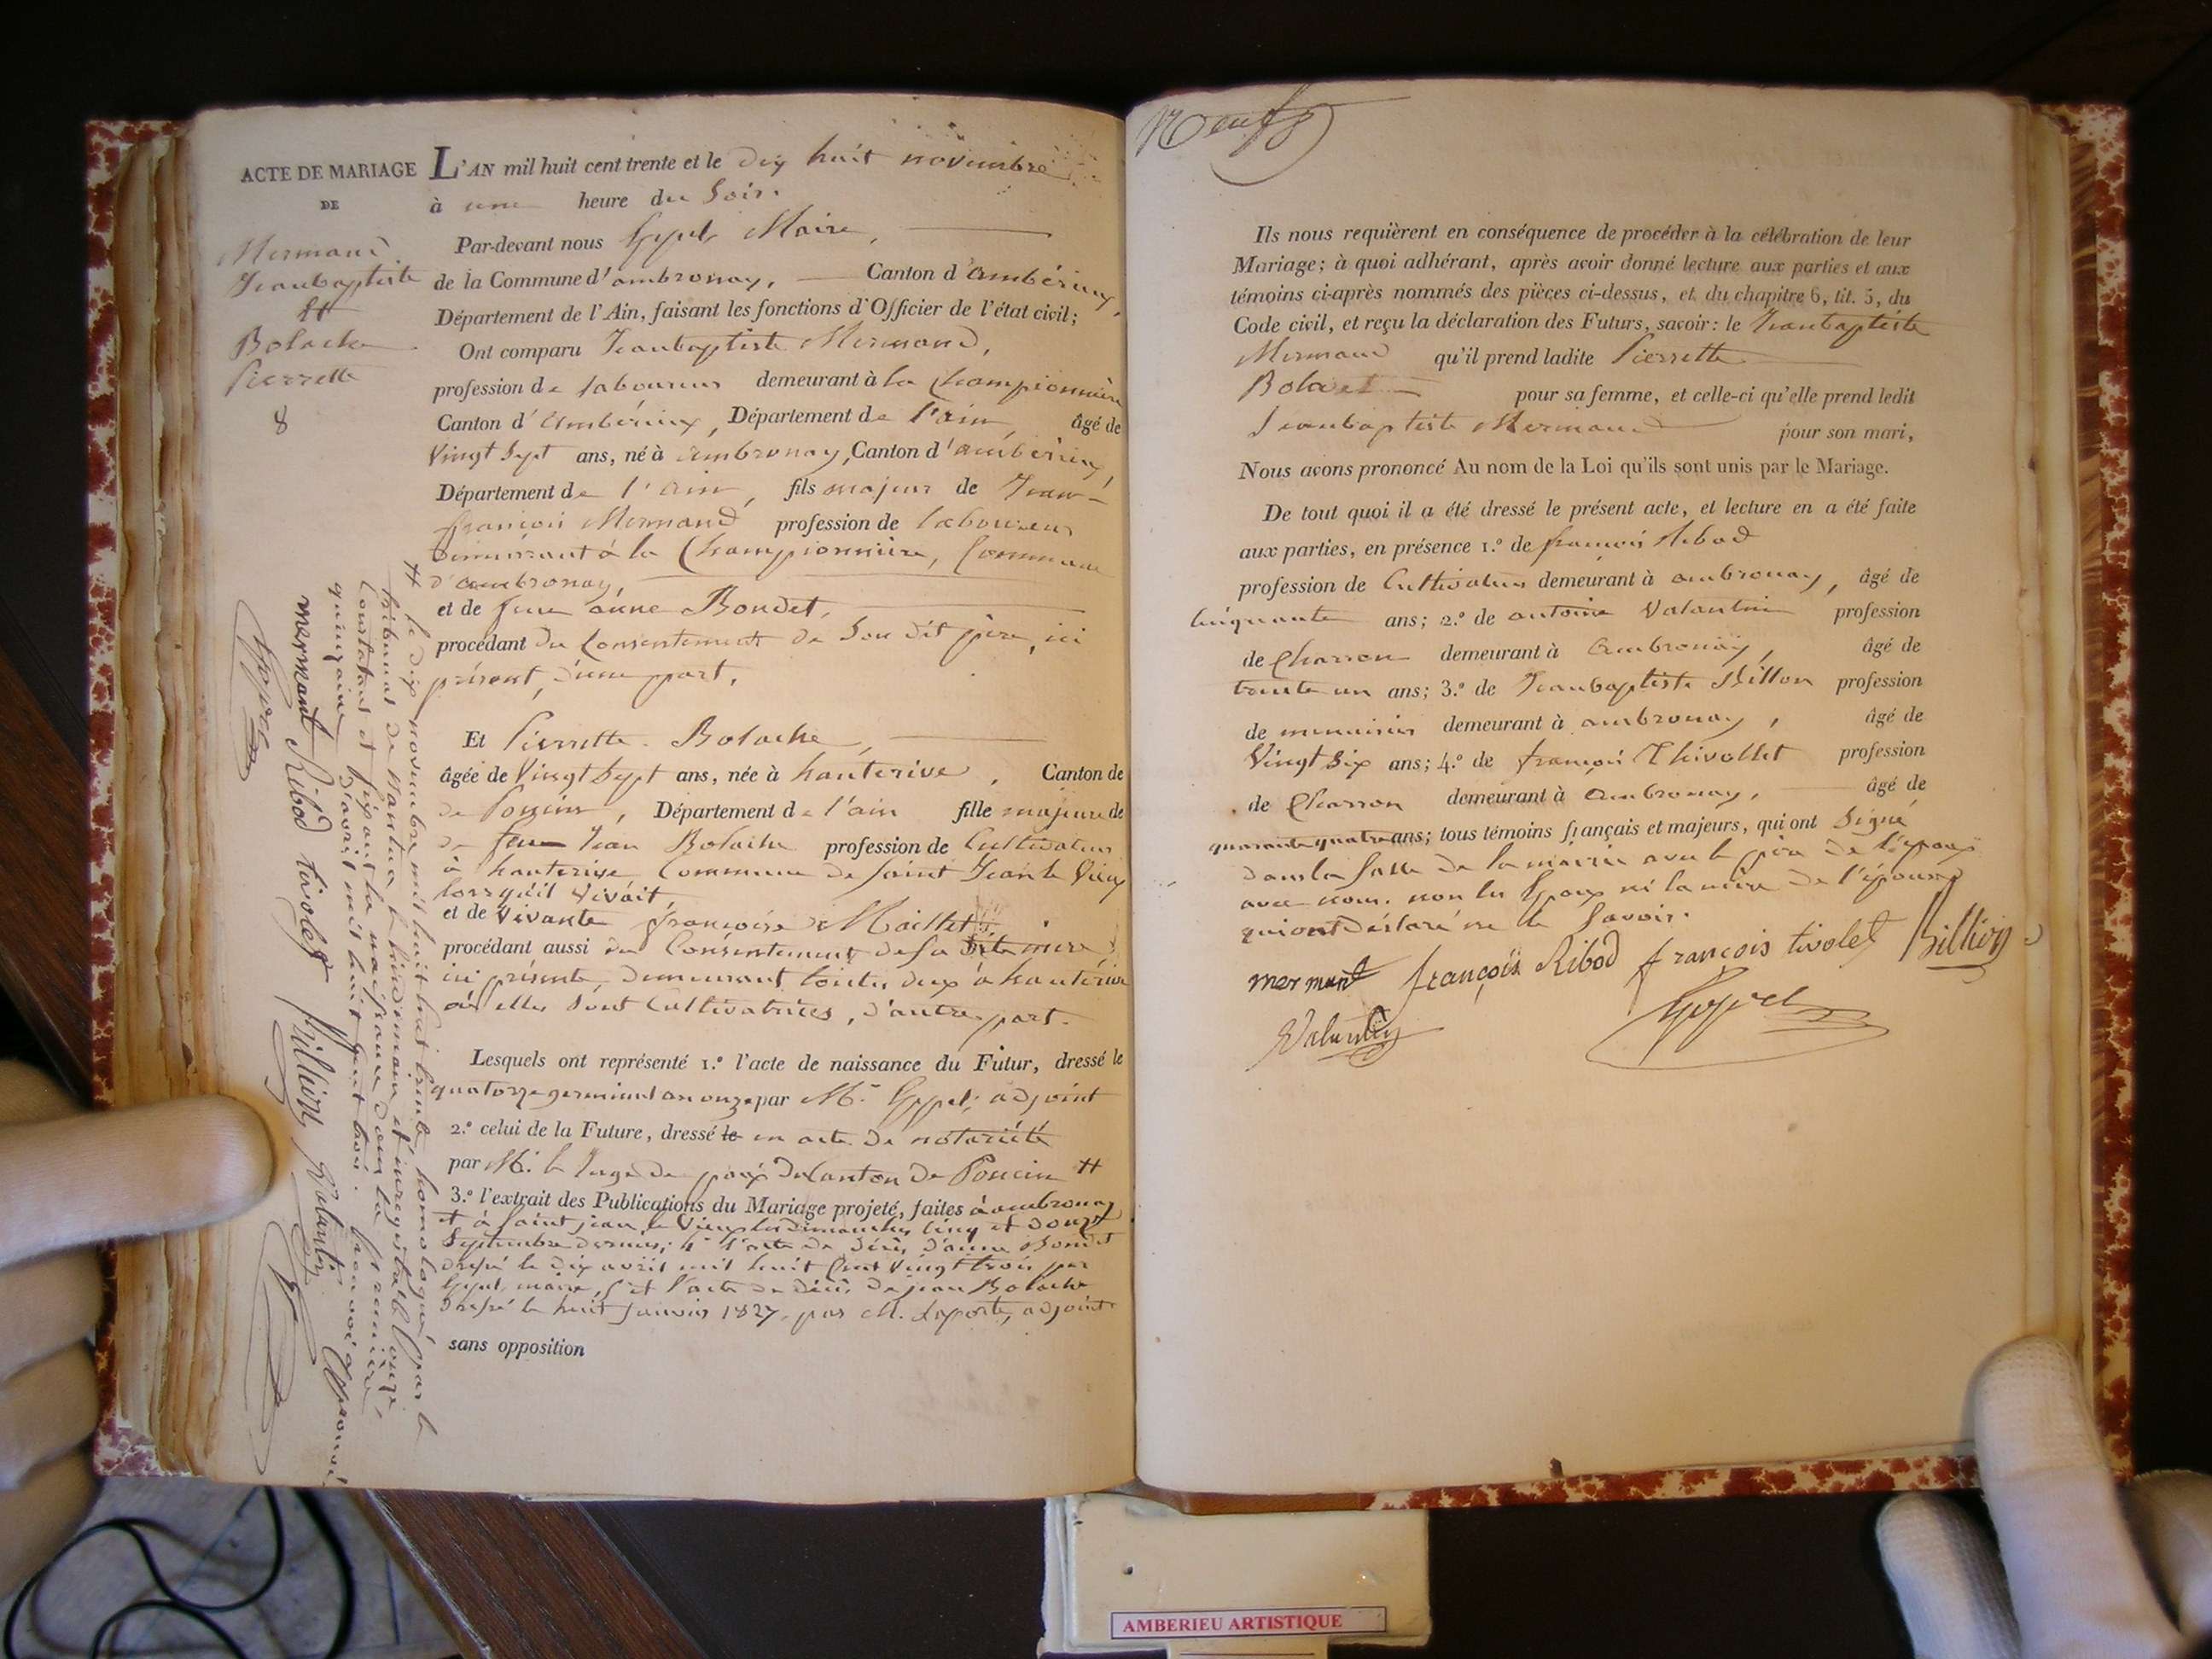 ACTE DE MARIAGE
DE
Mermand
Jeanbaptiste
et
Bolache
Pierrette
8
L'AN mil huit cent trente et le dix huit novembre
à une heure du soir.
Par-devant nous Maire,
de la Commune d'ambronay, Canton d'ambérieux,
Département de l'Ain, faisant les fonctions d'Officier de l'état civil;
Ont comparu Jeanbaptiste Mermand,
profession de laboureur demeurant à la Championnière
Canton d'ambérieux, Département de l'ain, âgé de
vingt sept ans, né à ambronay, Canton d'ambérieux,
Département de l'ain, fils majeur de Jean-
françois Mermand profession de laboureur
demeurant à la Championnière, Commune
d'ambronay,
et de feue anne Bondet,
procédant du consentement de son dit père, ici
présent, d'une part.
Et Pierrette Bolache,
âgée de vingt sept ans, née à hauterive, Canton de
de Poncin, Département de l'ain fille majeure de
de feu Jean Bolache profession de Cultivateur
à hauterive Commune de saint Jean le Vieux
lorsqu'il vivait,
et de vivante françoise Maillet
procédant aussi du consentement de sa dite mère,
ici présente, demeurant toutes deux à hauterive
où elles sont Cultivatrices, d'autre part.
Lesquels ont représenté 1.° l'acte de naissance du Futur, dressé le
quatorze germinal an onze par Mr. adjoint
2.° celui de la Future, dressé le en acte de notoriété
par Mr. le Juge de paix du Canton de Poncin #
3.° l'extrait des Publications du Mariage projeté, faites à ambronay
et à saint jean le Vieux les dimanches cinq et douze
septembre dernier; 4° l'acte de décès d'anne Bondet
dressé le dix avril mil huit cent vingt trois par
maire, 5° et l'acte de décès de jean Bolache
dressé le huit janvier 1827, par M. Laporte, adjoint
sans opposition
# le dix novembre mil huit cent trente, homologué par le
tribunal de Nantua le lendemain et enregistré le douze
constatant et fixant la naissance dans la première
quinzaine d'avril mil huit cent trois. renvoi approuvé
mermant Ribod tivolet Billion Valantin
Neuf
Ils nous requièrent en conséquence de procéder à la célébration de leur
Mariage; à quoi adhérant, après avoir donné lecture aux parties et aux
témoins ci-après nommés des pièces ci-dessus, et du chapitre 6, tit. 5, du
Code civil, et reçu la déclaration des Futurs, savoir: le Jeanbaptiste
Mermand qu'il prend ladite Pierrette
pour sa femme, et celle-ci qu'elle prend ledit
Jeanbaptiste Mermand pour son mari,
Nous avons prononcé Au nom de la Loi qu'ils sont unis par le Mariage.
De tout quoi il a été dressé le présent acte, et lecture en a été faite
aux parties, en présence 1.° de françois Ribod
profession de Cultivateur demeurant à ambronay, âgé de
cinquante ans; 2.° de antoine Valantin profession
de Charron demeurant à ambronay, âgé de
trente un ans; 3.° de Jeanbaptiste Billon profession
de menuisier demeurant à ambronay, âgé de
vingt six ans; 4.° de françois Thivollet profession
de Charron demeurant à ambronay, âgé de
quarante quatre ans; tous témoins français et majeurs, qui ont signé
dans la salle de la mairie avec le père de l'époux
avec nous. non les Epoux ni la mère de l'épouse
qui ont déclaré ne le savoir.
mermant françois Ribod françois tivolet Billion
Valantin
AMBERIEU ARTISTIQUE